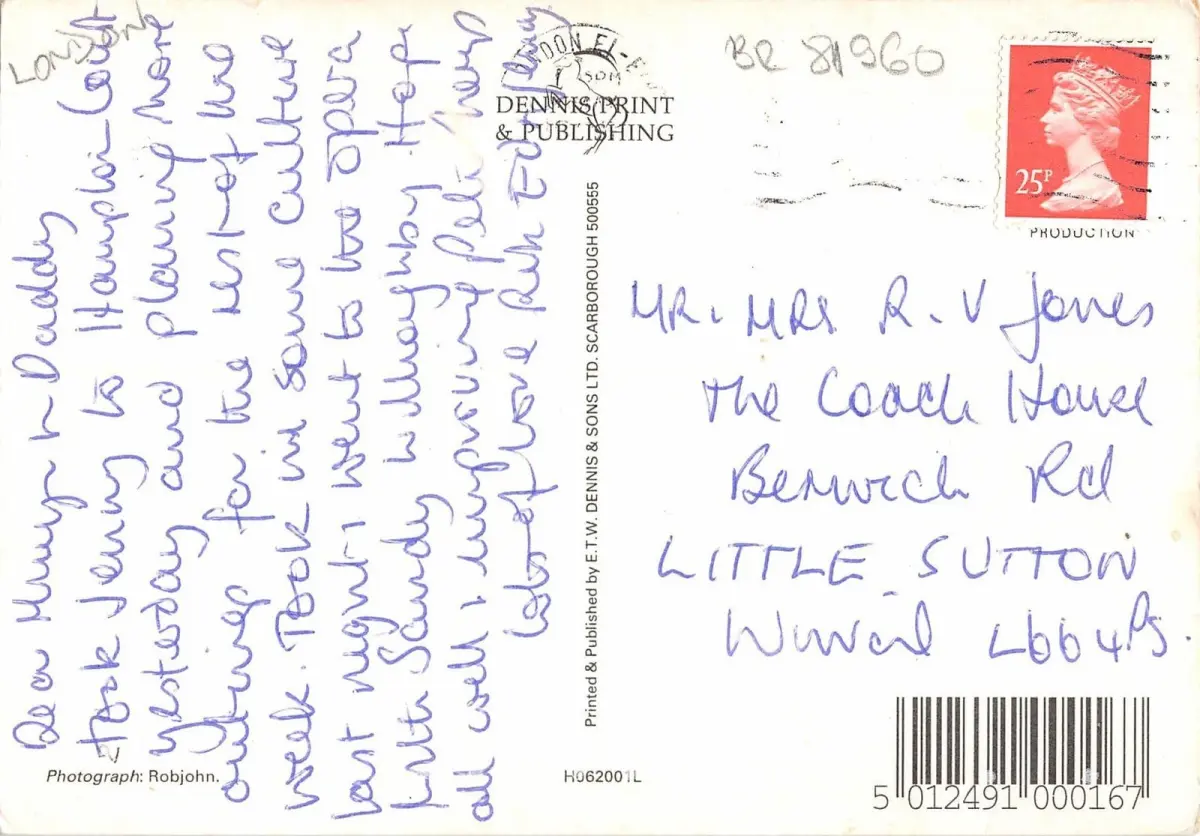 LONDON
Dear Mummy & Daddy
Took Jenny to Hampton Court
yesterday and planning more
outings for the rest of the
week. Took in some culture
last night & went to the opera
with Sandy Willoughby Hope
all well & improving
lots of love
DENNIS PRINT
& PUBLISHING
Printed & Published by E.T.W. DENNIS & SONS LTD. SCARBOROUGH 500555
BR 81960
25P
PRODUCTION
MR. MRS R. V Jones
The Coach House
Berwick Rd
LITTLE SUTTON
Wirral L66 4PS.
Photograph: Robjohn.
H062001L
5 012491 000167